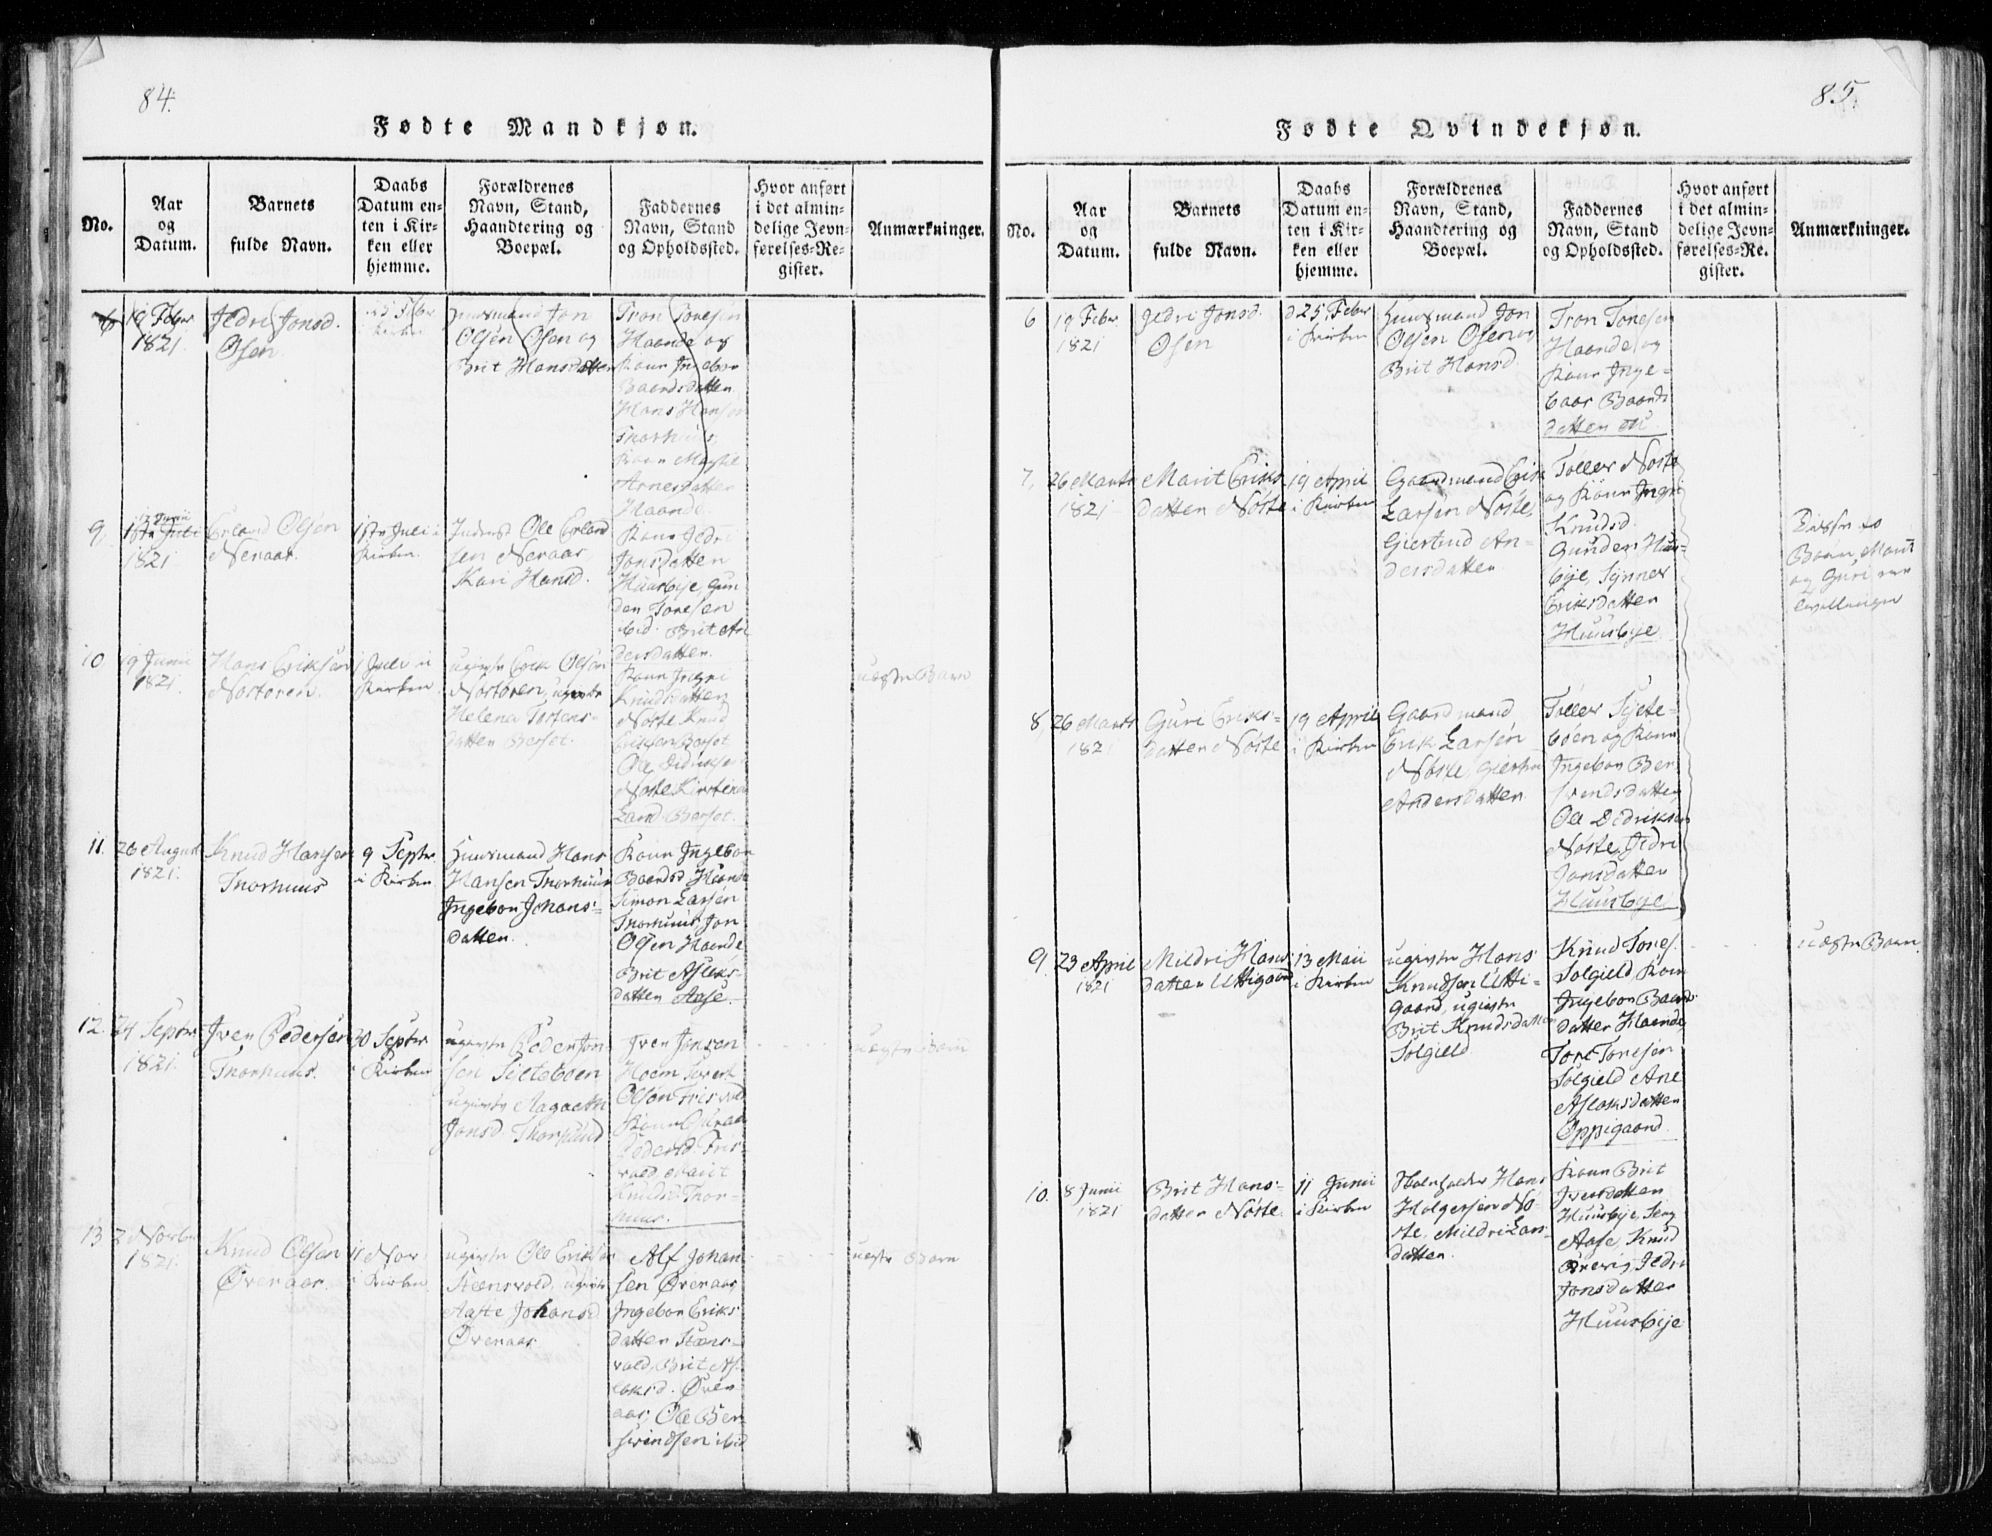 84.
Fødte Mandkjøn.
No.
Aar
og
Datum.
Barnets
fulde Navn.
Daabs
Datum en-
ten i Kir-
ken eller
hjemme.
Forældrenes
Navn, Stand,
Haandtering og
Boepæl.
Faddernes
Navn, Stand
og Opholdssted.
Hvor anført
i det almin-
delige Jevn-
førelses-Re-
gister.
Anmærkninger.
19 Febr
1821.
Jedri Jonsd.
Osen
Huusmand Jon
Olsen Osen og
Brit Hansdatter
Tron Tonesen
Haande og
Kone Ingebor
Baardsdatten
Hans Hansen
Thorhuus,
Arnesdatter
Haande.
9,
1ste Juli
1821
Erland Olsen
Neraas.
1ste Juli i
Kirken.
Inderst Ole Erland
sen Neraas,
Kari Hansd.
Kone Jedri
Jonsdatten
Huusbye, Gun
der Tonesen
ibid. Brit An
dersdatten.
10
19 Junii
1821.
Hans Eriksen
Nørstøren.
1 Juli i
Kirken
ugivte Erik Olsen
Nørstøren, ugivte
Helena Torstens-
datten Berset.
Kone Ingri
Knudsdatten
Nøste Knud
Eriksen Berset
Ole Didriksen
Nøste, Kirstena
Land Berset.
uægte Barn
11.
26 August
1821.
Knud Hansen
Thorhuus
9 Septr.
i Kirken
Huusmand Hans
Hansen Thorhuus
Ingebor Johans-
datten.
Kone Ingebor
Baardsd Haande
Simon Larsen
Thorhuus, Jon
Olsen Haande
Brit Aslaks-
datten Aase.
12.
24 Septr.
1821.
Iven Pedersen
Thorhuus.
30 Septr
i Kirken
ugivte Peder Jon-
sen Sylteboen
ugivte Aagaeth
Jonsd Thorhuus
Iven Jensen
Hoem Sivert
Olsen Frisvold
Kone Guroe
Pedersd. Fris-
vold, Marit
Knudsd. Thor-
huus.
uægte Barn
13
1821.
Knud Olsen
Øvenaas.
11 Nov
i Kirken
ugivte Ole Eriksen
Stænsvold, ugivte
Aaste Johansd
Øvenaas
Alf Johan-
sen Øvenaas,
Ingebor Eriks
datten Stæns-
vold, Brit As-
laksd. Øven
aas, Ole Ber-
svendsen ibid
uægte Barn
85.
Fødte Qvindekjøn.
No.
Aar
og
Datum.
Barnets
fulde Navn.
Daabs
Datum en-
ten i Kir-
ken eller
hjemme.
Forældrenes
Navn, Stand,
Haandtering og
Boepæl.
Faddernes
Navn, Stand
og Opholdssted.
Hvor anført
i det almin-
delige Jevn-
førelses-Re-
gister.
Anmærkninger.
6
19 Febr.
1821
Jedri Jonsd.
Osen
d 25 Febr
i Kirken
Huusmand Jon
Olsen Osen og
Brit Hansd.
Tron Tonesen
Haande og
Kone Inge-
baar Baards
datten
7,
26 Marts
1821
Marit Eriks
datten Nøste
19 April
i Kirken
Gaardmand Erik
Larsen Nøste,
Giertrud An-
dersdatten
Toller Nøste
og Kone Ingri
Knudsd.
Gunder Huus-
bye, Synnev
Eriksdatten
Huusbye.
Disse to
Børn, Marit
og Guri ere
tvillinger
8,
26 Marts
1821
Guri Eriks-
datten Nøste
19 April
i Kirken
Gaardmand
Erik Larsen
Nøste, Giertru
Andersdatten
Toller Sylte-
boen og Kone
Ingebor Ber
svendsdatten
Ole Didriksen
Nøste, Jedri
Jonsdatten
Huusbye.
9.
23 April
1821
Mildri Hans-
datten Uttigaard
13 Maii
i Kirken
ugivte Hans
Knudsen Utti-
gaard, ugivte
Brit Knudsdatten
Solgield
Knud Tones.
Solgield Kone
Ingebor Baards
datten Haande,
Tore Tonesen
Solgield Ane
Aslaksdatten
Oppigaard.
uægte Barn
10.
8 Junii
1821
Brit Hans-
datten Nøste.
11 Junii
i Kirken
Hans
Holgersen Nø-
ste, Mildri Lars-
datten.
Kone Brit
Iversdatten
Huusbye,
Aase Knud
Ørevig, Jedri
Jonsdatten
Huusbye